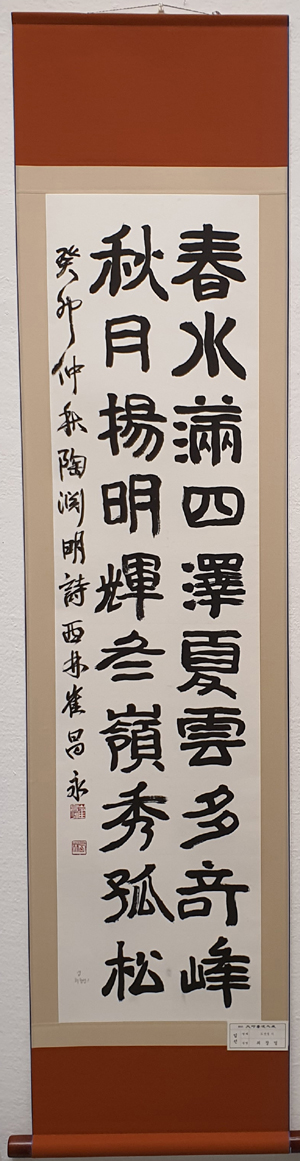 春水滿四澤夏雲多奇峰
秋月揚明輝冬嶺秀孤松
癸卯仲秋陶渊明詩西林崔昌永